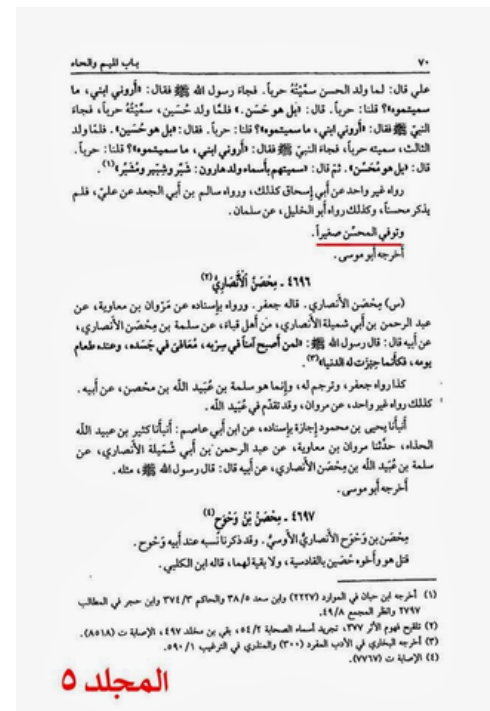 ٧٠
باب الميم والحاء
علي قال: لما ولد الحسن سمَّيْتُهُ حرباً. فجاءَ رسول الله ﷺ فقال: «أَروني ابني، ما
سميتموه»؟ قلنا: حرباً. قال: «بل هو حَسَن». فلمَّا ولد حُسَين، سمَّيْتُهُ حرباً، فجاءَ
النبيّ ﷺ فقال: «أَروني ابني، ما سميتموه»؟ قلنا: حرباً. فقال: «بل هو حُسَين». فلمَّا ولد
الثالث، سميته حرباً، فجاءَ النبيّ ﷺ فقال: «أَروني ابني، ما سميتموه»؟ قلنا: حرباً.
قال: «بل هو مُحَسِّن». ثمّ قال: «سميتهم بأَسماء ولد هارون: شَبَّر وشَبِير ومُشَبَّر»(١).
رواه غير واحد عن أَبي إِسحاق كذلك، ورواه سالم بن أَبي الجعد عن عليّ، فلم
يذكر محسناً، وكذلك رواه أَبو الخليل، عن سلمان.
وتوفي المحسِّن صغيراً.
أَخرجه أَبو موسى.
٤٦٩٦ ـ مِحْصَنُ الأَنْصَارِيُّ(٢)
(س) مِحْصَن الأَنصاري. قاله جعفر. ورواه بإِسناده عن مَرْوان بن معاوية، عن
عبد الرحمن بن أَبي شميلة الأَنصاري، من أَهل قباءَ، عن سلمة بن مِحْصَن الأَنصاري،
عن أَبيه قال: قال رسول الله ﷺ: «لمن أَصبح آمناً في سِرْبِه، مُعَافىً في جَسَده، وعنده طعام
يومه، فكأَنما حِيْزَت له الدنيا»(٣).
كذا رواه جعفر، وترجم له، وإِنما هو سلمة بن عُبَيد الله بن محصن، عن أَبيه.
كذلك رواه غير واحد، عن مروان، وقد تقدّم في عُبَيد الله.
أَنبأَنا يحيى بن محمود إِجازة بإِسناده، عن ابن أَبي عاصم: أَنبأَنا كثير بن عبيد الله
الحذاء، حدَّثنا مروان بن معاوية، عن عبد الرحمن بن أَبي شُمَيلة الأَنصاري، عن
سلمة بن عُبَيد الله بن مِحْصَن الأَنصاري، عن أَبيه قال: قال رسول الله ﷺ، مثله.
أَخرجه أَبو موسى.
٤٦٩٧ ـ مِحْصَنُ بْنُ وَحْوَحٍ(٤)
مِحْصَن بن وَحْوَح الأَنصاريُّ الأَوسيُّ. وقد ذكرنا نَسبه عند أَبيه وَحْوح.
قتل هو وأَخوه حُصَين بالقادسية، ولا بقية لهما، قاله ابن الكلبي.
(١) أخرجه ابن حبان في الموارد (٢٢٢٧) وابن سعد ٣٨/٥ والحاكم ٣٧٤/٣ وابن حجر في المطالب
٢٧٩٧ وانظر المجمع ٤٩/٨.
(٢) تلقيح فهوم الأثر ٣٧٧، تجريد أسماء الصحابة ٥٤/٢، بقي بن مخلد ٤٩٧، الإصابة ت (٨٥١٨).
(٣) أخرجه البخاري في الأدب المفرد (٣٠٠) والمنذري في الترغيب ٥٩٠/١.
(٤) الإصابة ت (٧٧٦٧).
المجلد ٥